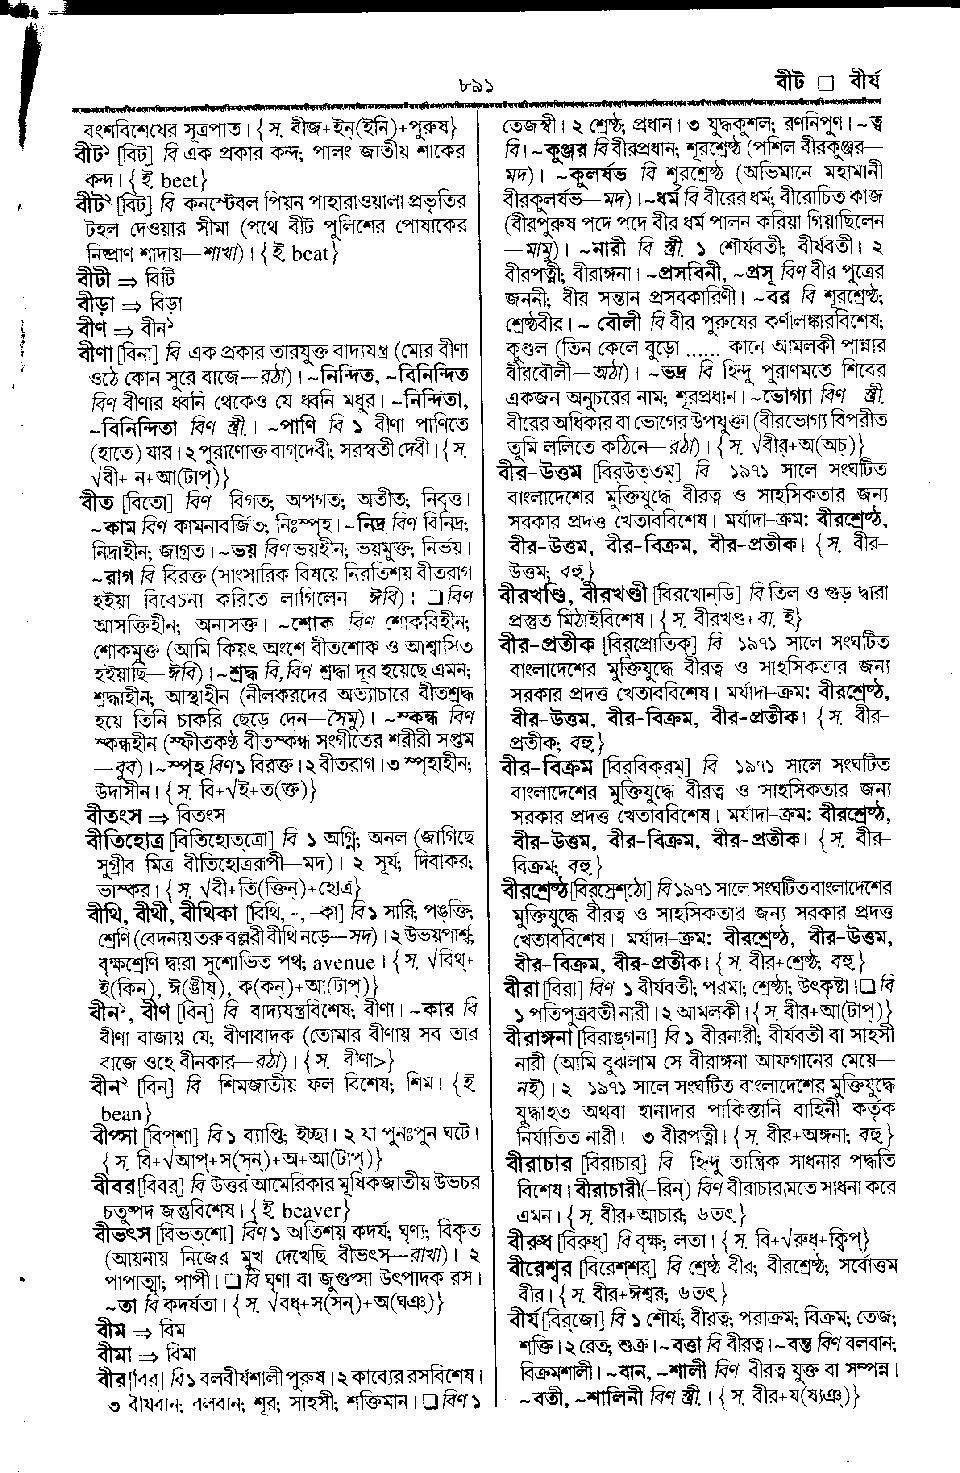 ৮৯১
বীট □ বীর্য
বংশবিশেষের সূত্রপাত। {স. বীজ+ইন্(ইনি)+পুরুষ}
বীট১ [বিট্] বি এক প্রকার কন্দ; পালং জাতীয় শাকের
কন্দ। {ই. beet}
বীট২ [বিট্] বি কনস্টেবল পিয়ন পাহারাওয়ালা প্রভৃতির
টহল দেওয়ার সীমা (পথে বীট পুলিশের পোষাকের
নিষ্প্রাণ শাদায়—শাখা)। {ই. beat}
বীটী ⇒ বিটি
বীড়া ⇒ বিড়া
বীণ ⇒ বীন১
বীণা [বিনা] বি এক প্রকার তারযুক্ত বাদ্যযন্ত্র (মোর বীণা
ওঠে কোন সুরে বাজে—রঠা)। ~নিন্দিত, ~বিনিন্দিত
বিণ বীণার ধ্বনি থেকেও যে ধ্বনি মধুর। ~নিন্দিতা,
~বিনিন্দিতা বিণ স্ত্রী.। ~পাণি বি ১ বীণা পাণিতে
(হাতে) যার। ২ পুরাণোক্ত বাগ্‌দেবী; সরস্বতী দেবী। {স.
√বী+ ন+আ(টাপ্)}
বীত [বিতো] বিণ বিগত; অপগত; অতীত; নিবৃত্ত।
~কাম বিণ কামনাবর্জিত; নিঃস্পৃহ। ~নিদ্র বিণ বিনিদ্র;
নিদ্রাহীন; জাগ্রত। ~ভয় বিণ ভয়হীন; ভয়মুক্ত; নির্ভয়।
~রাগ বি বিরক্ত (সাংসারিক বিষয়ে নিরতিশয় বীতরাগ
হইয়া বিবেচনা করিতে লাগিলেন ঈবি)। □ বিণ
আসক্তিহীন; অনাসক্ত। ~শোক বিণ শোকবিহীন;
শোকমুক্ত (আমি কিয়ৎ অংশে বীতশোক ও আশ্বাসিত
হইয়াছি—ঈবি)। ~শ্রদ্ধ বি, বিণ শ্রদ্ধা দূর হয়েছে এমন;
শ্রদ্ধাহীন; আস্থাহীন (নীলকরদের অত্যাচারে বীতশ্রদ্ধ
হয়ে তিনি চাকরি ছেড়ে দেন—সৈমু)। ~স্কন্ধ বিণ
স্কন্ধহীন (স্ফীতকণ্ঠ বীতস্কন্ধ সংগীতের শরীরী সপ্তম
—বুব)। ~স্পৃহ বিণ ১ বিরক্ত। ২ বীতরাগ। ৩ স্পৃহাহীন;
উদাসীন। {স. বি+√ই+ত(ক্ত)}
বীতংস ⇒ বিতংস
বীতিহোত্র [বিতিহোত্‌ত্রো] বি ১ অগ্নি; অনল (জাগিছে
সুগ্রীব মিত্র বীতিহোত্ররূপী—মদ)। ২ সূর্য; দিবাকর;
ভাস্কর। {স. √বী+তি(ক্তিন্)+হোত্র}
বীথি, বীথী, বীথিকা [বিথি, -, -কা] বি ১ সারি; পঙ্‌ক্তি;
শ্রেণি (বেদনায় তরু বল্লরী বীথি নড়ে—সদ)। ২ উভয়পার্শ্বে
বৃক্ষশ্রেণি দ্বারা সুশোভিত পথ; avenue। {স. √বিথ্+
ই(কিন্), ঈ(ঙীষ্), ক(কন্)+আ(টাপ্)}
বীন১, বীণ [বিন্] বি বাদ্যযন্ত্রবিশেষ; বীণা। ~কার বি
বীণা বাজায় যে; বীণাবাদক (তোমার বীণায় সব তার
বাজে ওহে বীনকার—রঠা)। {স. বীণা>}
বীন২ [বিন্] বি শিমজাতীয় ফল বিশেষ; শিম। {ই
bean}
বীপ্সা [বিপ্‌শা] বি ১ ব্যাপ্তি; ইচ্ছা। ২ যা পুনঃপুন ঘটে।
{স. বি+√আপ্+স(সন্)+অ+আ(টাপ্)}
বীবর [বিবর্] বি উত্তর আমেরিকার মূষিকজাতীয় উভচর
চতুষ্পদ জন্তুবিশেষ। {ই. beaver}
বীভৎস [বিভত্‌শো] বিণ ১ অতিশয় কদর্য; ঘৃণ্য; বিকৃত
(আয়নায় নিজের মুখ দেখেছি বীভৎস—রাখা)। ২
পাপাত্মা; পাপী। □ বি ঘৃণা বা জুগুপ্সা উৎপাদক রস।
~তা বি কদর্যতা। {স. √বধ্+স(সন্)+অ(ঘঞ্)}
বীম ⇒ বিম
বীমা ⇒ বিমা
বীর [বির্] বি ১ বলবীর্যশালী পুরুষ। ২ কাব্যের রসবিশেষ।
৩ বীর্যবান; বলবান; শূর; সাহসী; শক্তিমান। □ বিণ ১
তেজস্বী। ২ শ্রেষ্ঠ; প্রধান। ৩ যুদ্ধকুশল; রণনিপুণ। ~ত্ব
বি। ~কুঞ্জর বি বীরপ্রধান; শূরশ্রেষ্ঠ (পশিল বীরকুঞ্জর—
মদ)। ~কুলর্ষভ বি শূরশ্রেষ্ঠ (অভিমানে মহামানী
বীরকুলর্ষভ—মদ)। ~ধর্ম বি বীরের ধর্ম; বীরোচিত কাজ
(বীরপুরুষ পদে পদে বীর ধর্ম পালন করিয়া গিয়াছিলেন
—মামু)। ~নারী বি স্ত্রী. ১ শৌর্যবতী; বীর্যবতী। ২
বীরপত্নী; বীরাঙ্গনা। ~প্রসবিনী, ~প্রসূ বিণ বীর পুত্রের
জননী; বীর সন্তান প্রসবকারিণী। ~বর বি শূরশ্রেষ্ঠ;
শ্রেষ্ঠবীর। ~ বৌলী বি বীর পুরুষের কর্ণালঙ্কারবিশেষ;
কুণ্ডল (তিন কেলে বুড়ো ...... কানে আমলকী পান্নার
বীরবৌলী—অঠা)। ~ভদ্র বি হিন্দু পুরাণমতে শিবের
একজন অনুচরের নাম; শূরপ্রধান। ~ভোগ্যা বিণ স্ত্রী.
বীরের অধিকার বা ভোগের উপযুক্ত। (বীরভোগ্যা বিপরীত
তুমি ললিতে কঠিনে—রঠা)। {স. √বীর+আ(অচ)}
বীর-উত্তম [বিরউত্‌তম্] বি ১৯৭১ সালে সংঘটিত
বাংলাদেশের মুক্তিযুদ্ধে বীরত্ব ও সাহসিকতার জন্য
সরকার প্রদত্ত খেতাববিশেষ। মর্যাদা-ক্রম: বীরশ্রেষ্ঠ,
বীর-উত্তম, বীর-বিক্রম, বীর-প্রতীক। {স. বীর-
উত্তম; বহু.}
বীরখণ্ডি, বীরখণ্ডী [বিরখোন্‌ডি] বি তিল ও গুড় দ্বারা
প্রস্তুত মিঠাইবিশেষ। {স. বীরখণ্ড+বা. ই}
বীর-প্রতীক [বিরপ্রোতিক্] বি ১৯৭১ সালে সংঘটিত
বাংলাদেশের মুক্তিযুদ্ধে বীরত্ব ও সাহসিকতার জন্য
সরকার প্রদত্ত খেতাববিশেষ। মর্যাদা-ক্রম: বীরশ্রেষ্ঠ,
বীর-উত্তম, বীর-বিক্রম, বীর-প্রতীক। {স. বীর-
প্রতীক; বহু.}
বীর-বিক্রম [বিরবিক্‌রম্] বি ১৯৭১ সালে সংঘটিত
বাংলাদেশের মুক্তিযুদ্ধে বীরত্ব ও সাহসিকতার জন্য
সরকার প্রদত্ত খেতাববিশেষ। মর্যাদা-ক্রম: বীরশ্রেষ্ঠ,
বীর-উত্তম, বীর-বিক্রম, বীর-প্রতীক। {স. বীর-
বিক্রম; বহু.}
বীরশ্রেষ্ঠ [বিরস্রেশ্‌ঠো] বি ১৯৭১ সালে সংঘটিত বাংলাদেশের
মুক্তিযুদ্ধে বীরত্ব ও সাহসিকতার জন্য সরকার প্রদত্ত
খেতাববিশেষ। মর্যাদা-ক্রম: বীরশ্রেষ্ঠ, বীর-উত্তম,
বীর-বিক্রম, বীর-প্রতীক। {স. বীর+শ্রেষ্ঠ; বহু.}
বীরা [বিরা] বিণ ১ বীর্যবতী; পরমা; শ্রেষ্ঠা; উৎকৃষ্টা। □ বি
১ পতিপুত্রবতী নারী। ২ আমলকী। {স. বীর+আ(টাপ্)}
বীরাঙ্গনা [বিরাঙগনা] বি ১ বীরনারী; বীর্যবতী বা সাহসী
নারী (আমি বুঝলাম সে বীরাঙ্গনা আফগানের মেয়ে—
নই)। ২ ১৯৭১ সালে সংঘটিত বাংলাদেশের মুক্তিযুদ্ধে
যুদ্ধাহত অথবা হানাদার পাকিস্তানি বাহিনী কর্তৃক
নির্যাতিত নারী। ৩ বীরপত্নী। {স. বীর+অঙ্গনা; বহু}
বীরাচার [বিরাচার্] বি হিন্দু তান্ত্রিক সাধনার পদ্ধতি
বিশেষ। বীরাচারী(-রিন্) বিণ বীরাচার মতে সাধনা করে
এমন। {স. বীর+আচার; ৬তৎ}
বীরুধ [বিরুধ্] বি বৃক্ষ; লতা। {স. বি+√রুধ্+ক্বিপ্}
বীরেশ্বর [বিরেশ্‌শর্] বি শ্রেষ্ঠ বীর; বীরশ্রেষ্ঠ; সর্বোত্তম
বীর। {স. বীর+ঈশ্বর; ৬তৎ}
বীর্য [বির্‌জো] বি ১ শৌর্য; বীরত্ব; পরাক্রম; বিক্রম; তেজ;
শক্তি। ২ রেত; শুক্র। ~বত্তা বি বীরত্ব। ~বন্ত বিণ বলবান;
বিক্রমশালী। ~বান, ~শালী বিণ বীরত্ব যুক্ত বা সম্পন্ন।
~বতী, ~শালিনী বিণ স্ত্রী.। {স. বীর+য(ষ্যঞ্)}